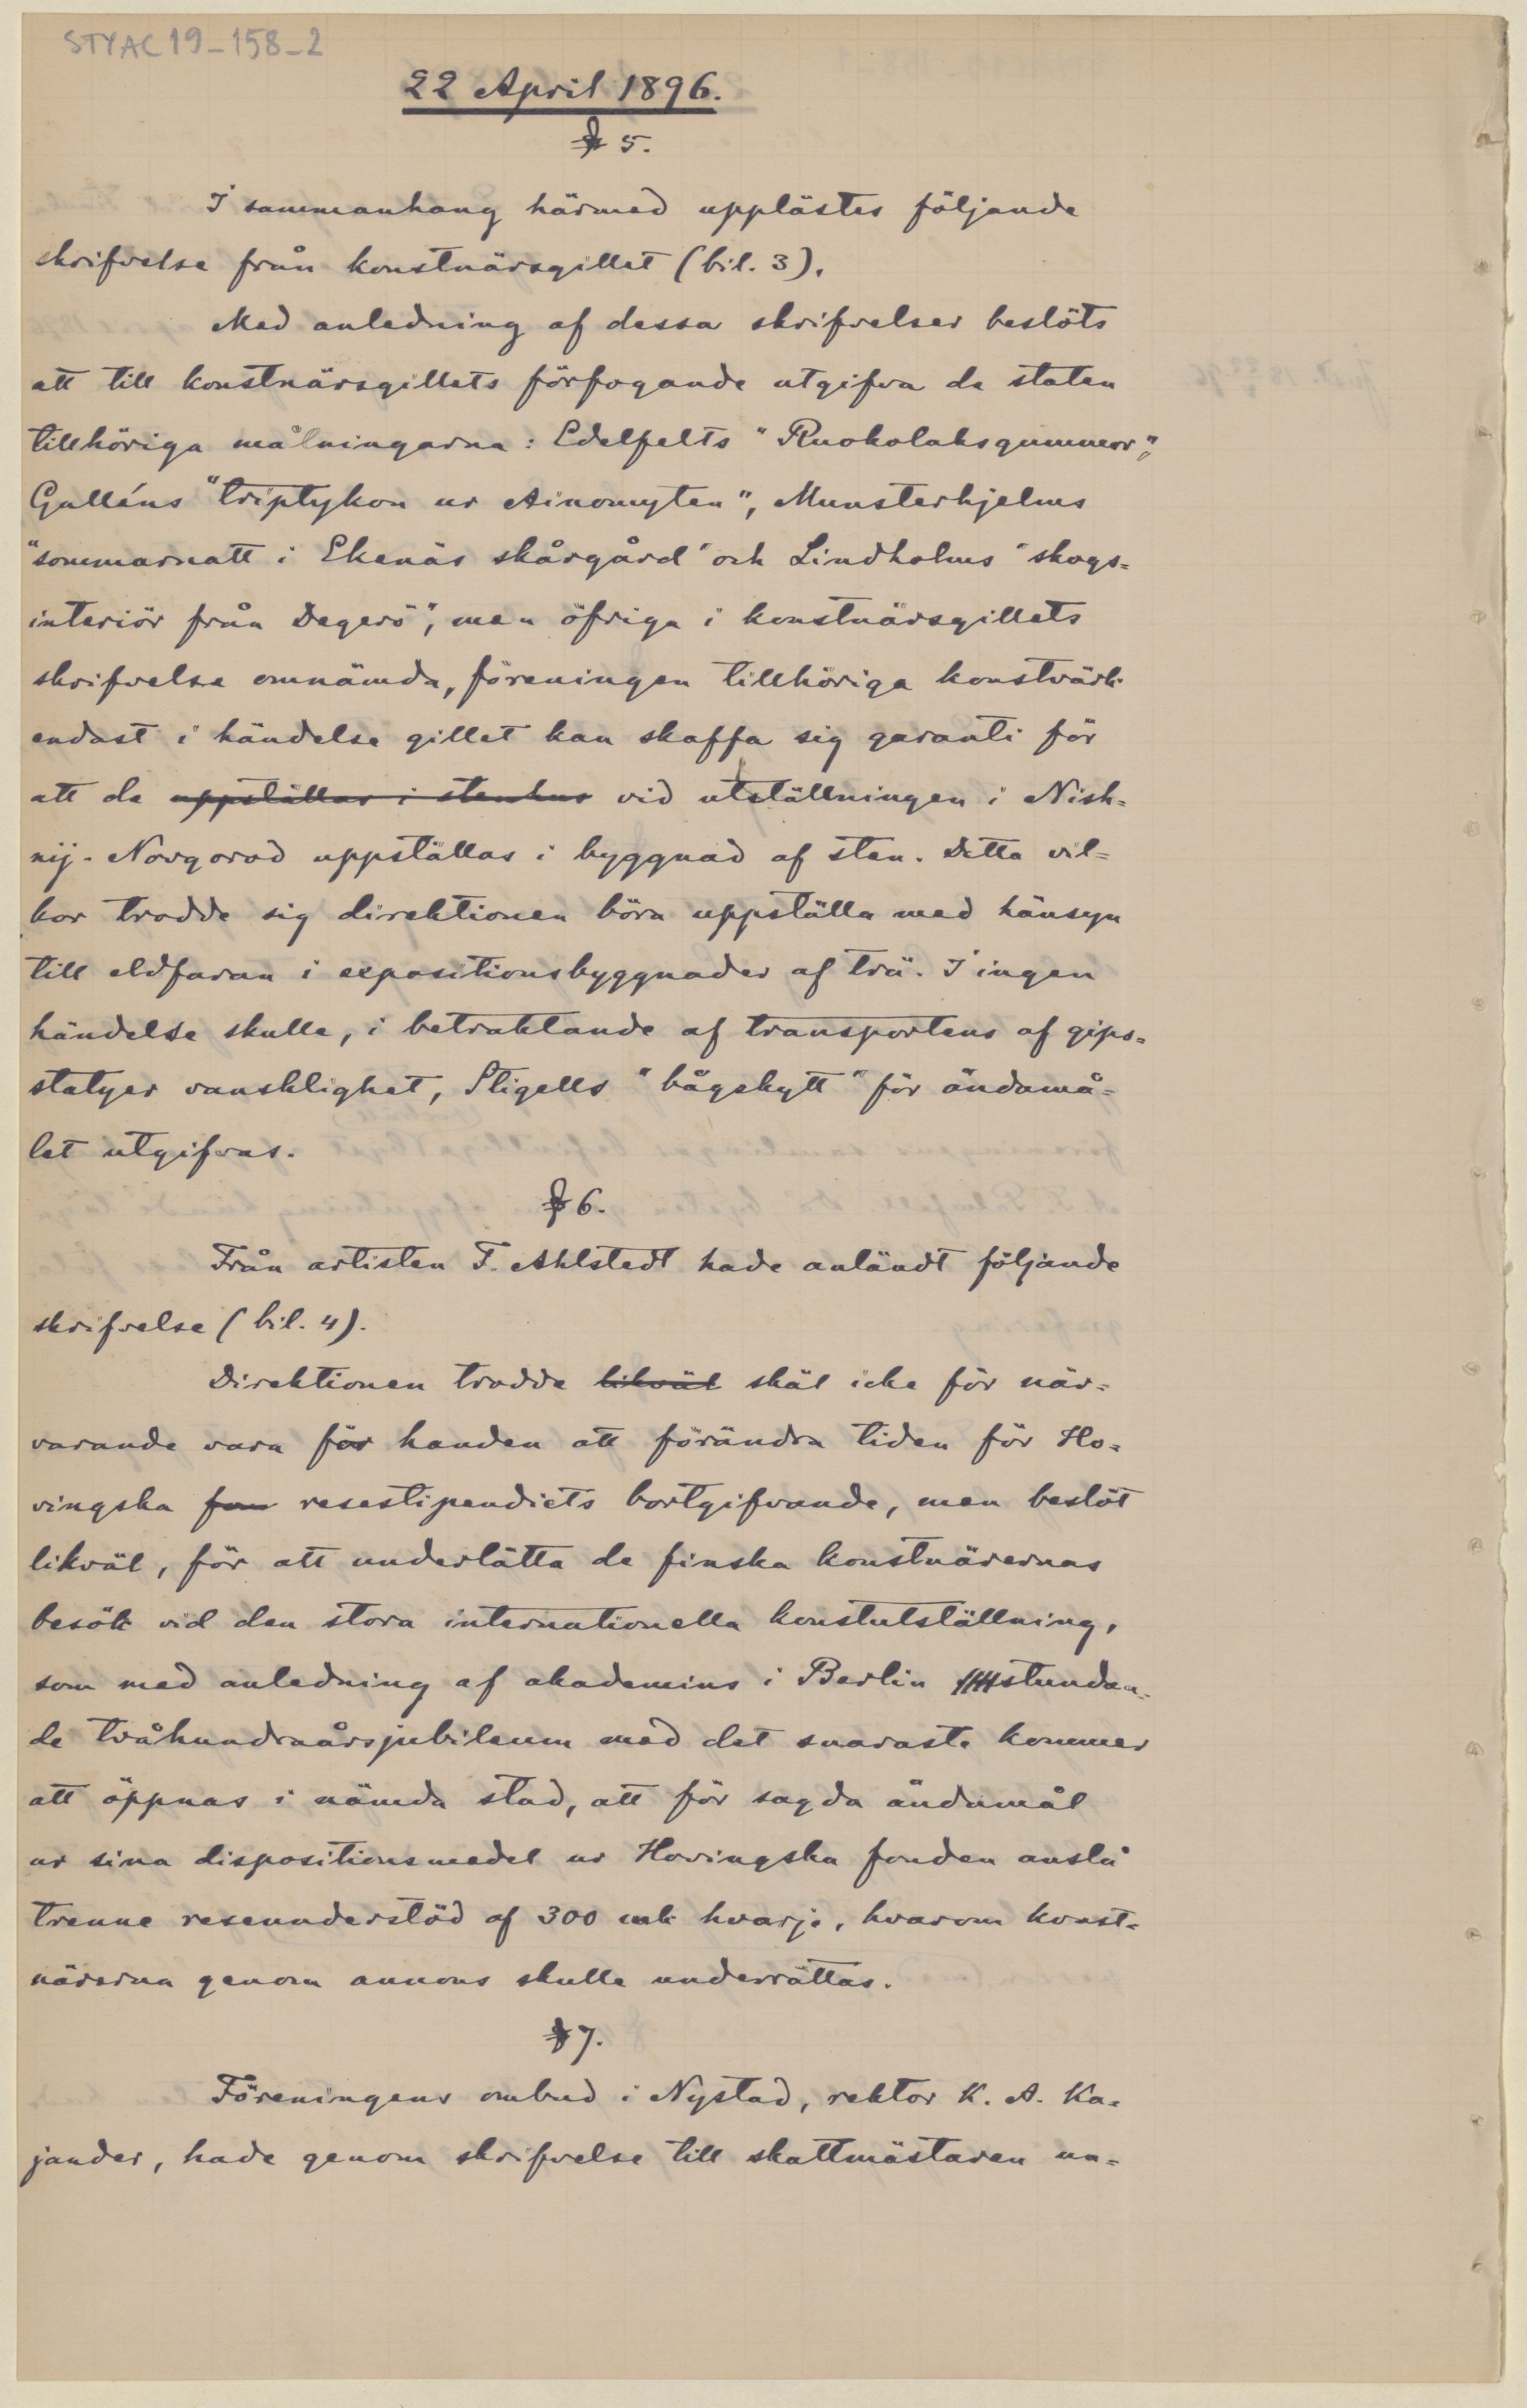 STYAC19-158-2
22 April 1896.
§ 5.
I sammanhang härmed upplästes följande
skrifvelse från konstnärsgillet (bil. 3).
Med anledning af dessa skrifvelser beslöts
att till konstnärsgillets förfogande utgifva de staten
tillhöriga målningarna: Edelfelts "Ruokolaksgummor",
Galléns "triptykon ur Ainomyten", Munsterhjelms
"sommarnatt i Ekenäs skärgård" och Lindholms "skogs=
interiör från Degerö", men öfriga i konstnärsgillets
skrifvelse omnämda, föreningen tillhöriga konstvärk
endast i händelse gillet kan skaffa sig garanti för
att de uppställas i stenhus vid utställningen i Nish=
nij-Novgorod uppställas i byggnad af sten. Detta vil=
kor trodde sig direktionen böra uppställa med hänsyn
till eldfaran i expositionsbyggnader af trä. I ingen
händelse skulle, i betraktande af transportens af gips=
statyer vansklighet, Stigells "bågskytt" för ändamå=
let utgifvas.
§ 6.
Från artisten F. Ahlstedt hade anländt följande
skrifvelse (bil. 4).
Direktionen trodde likväl skäl icke för när=
varande vara för handen att förändra tiden för Ho=
vingska fon resestipendiets bortgifvande, men beslöt
likväl, för att underlätta de finska konstnärernas
besök vid den stora internationella konstutställning,
som med anledning af akademins i Berlin stundan=
de tvåhundraårsjubileum med det snaraste kommer
att öppnas i nämda stad, att för sagda ändamål
ur sina dispositionsmedel ur Hovingska fonden anslå
trenne reseunderstöd af 300 mk hvarje, hvarom konst=
närerna genom annons skulle underrättas.
§ 7.
Föreningens ombud i Nystad, rektor K. A. Ka=
jander, hade genom skrifvelse till skattmästaren un=